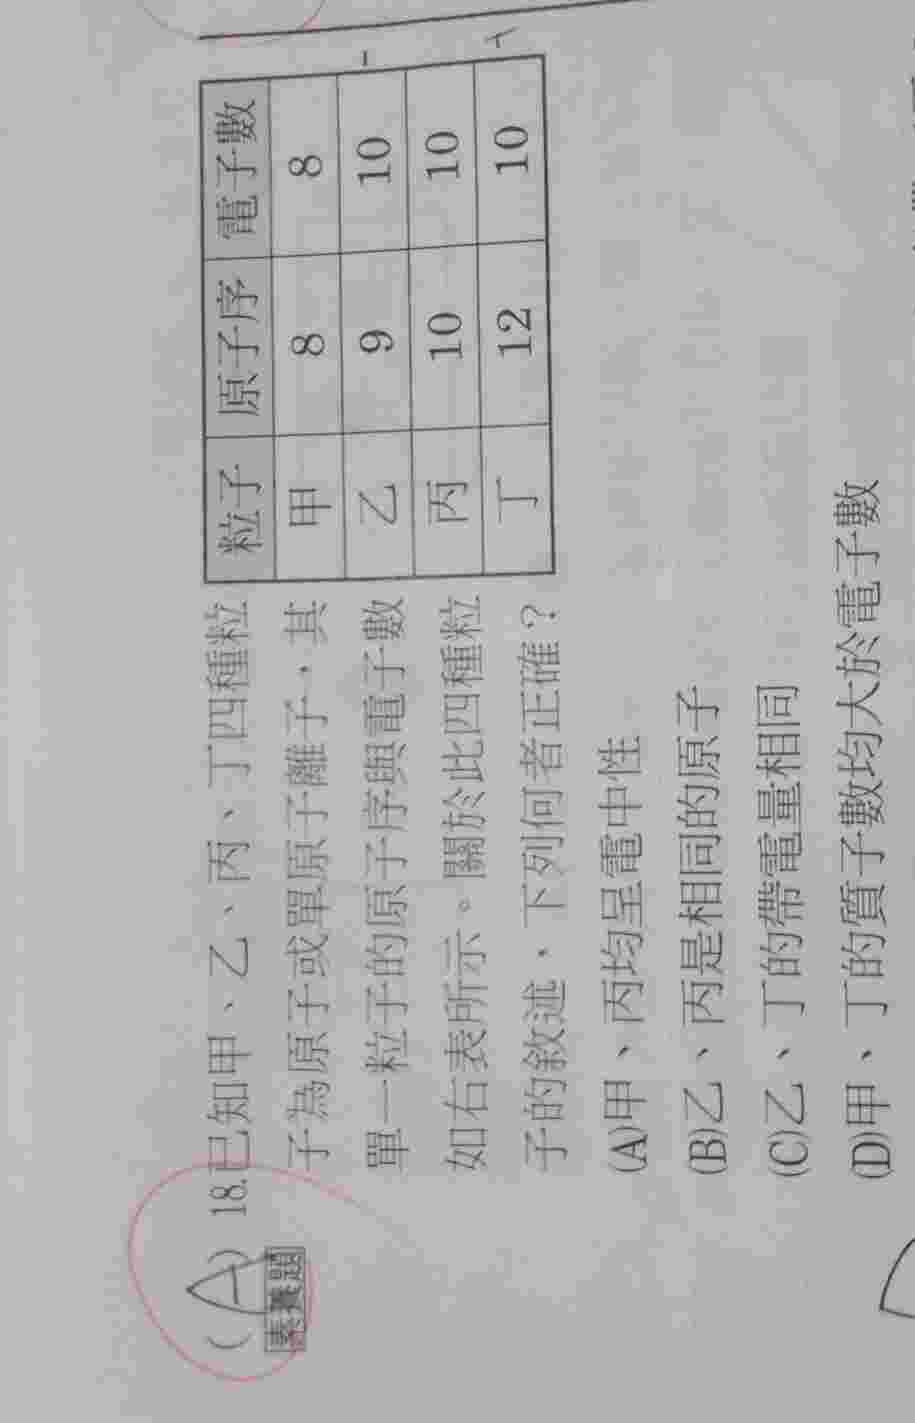 (A) 18.已知甲、乙、丙、丁四種粒
素養題
子為原子或單原子離子,其
單一粒子的原子序與電子數
如右表所示。關於此四種粒
子的敘述,下列何者正確?
粒子 原子序 電子數
甲 8 8
乙 9 10 -
丙 10 10
丁 12 10 +
(A)甲、丙均呈電中性
(B)乙、丙是相同的原子
(C)乙、丁的帶電量相同
(D)甲、丁的質子數均大於電子數